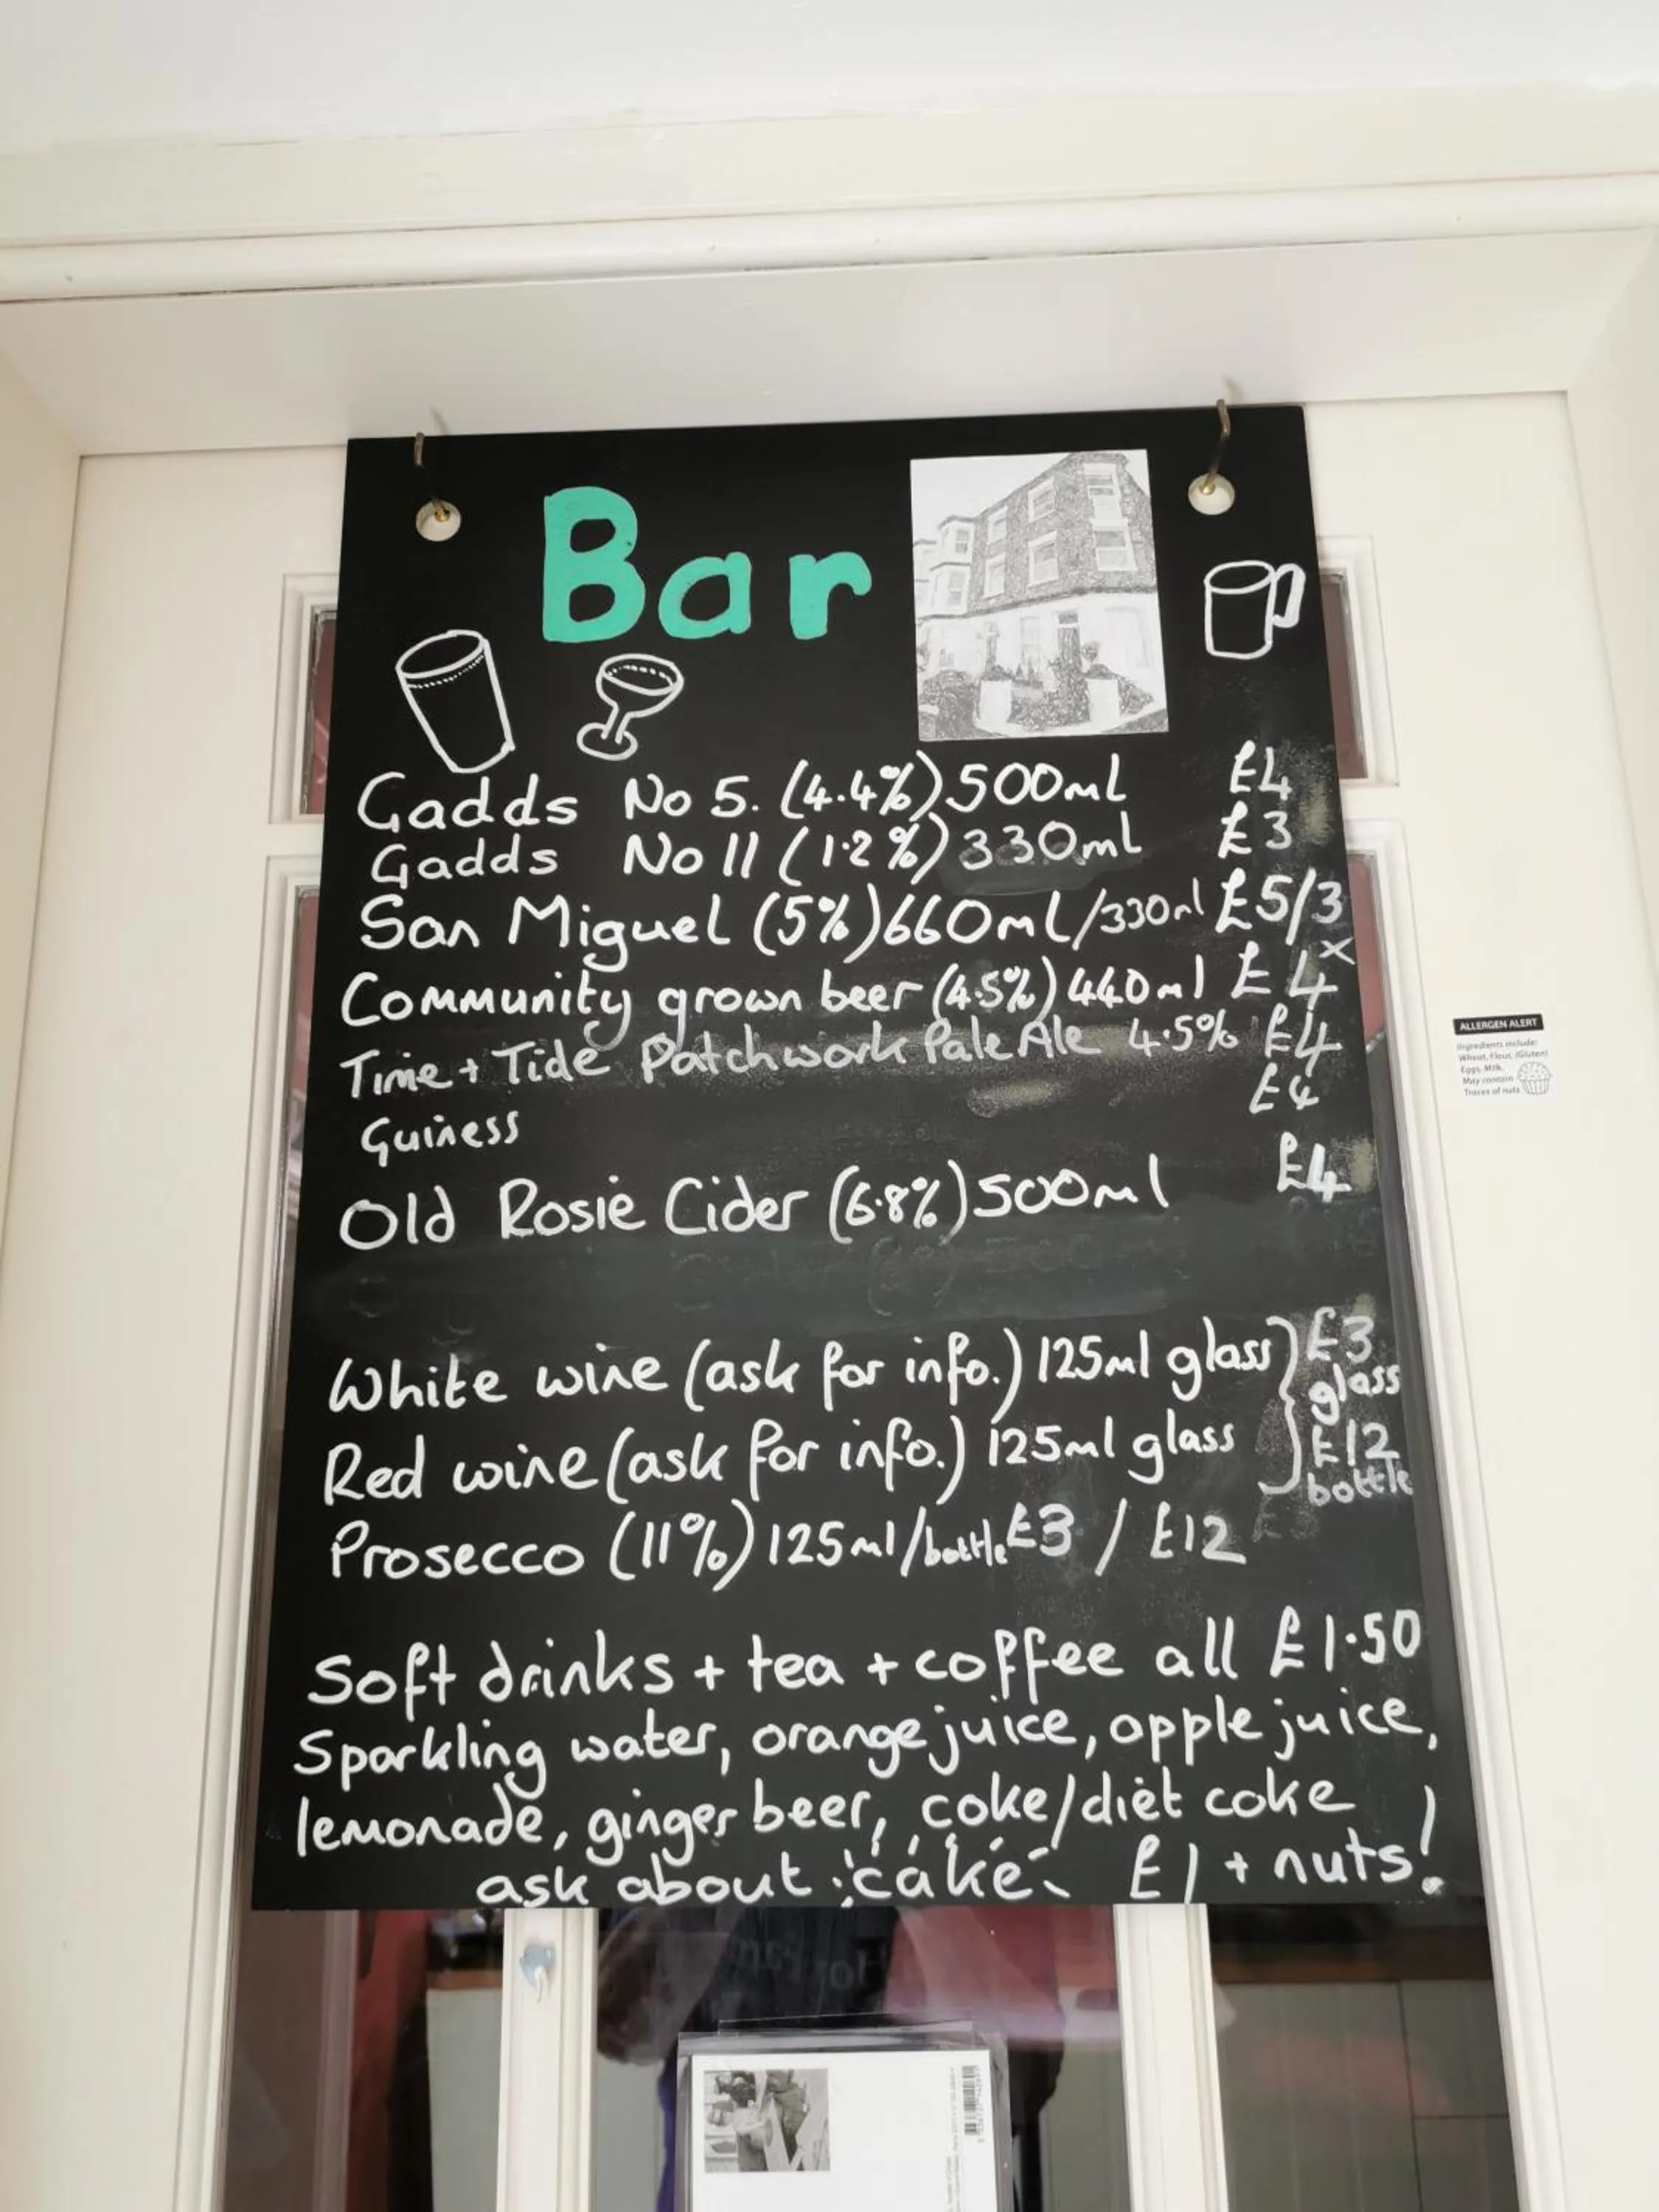 Bar
Gadds No 5. (4.4%) 500ml £4
Gadds No 11 (1.2%) 330ml £3
San Miguel (5%) 660ml/330ml £5/3
Community grown beer (4.5%) 440ml £4
Time + Tide Patchwork Pale Ale 4.5% £4
Guiness £4
Old Rosie Cider (6.8%) 500ml £4
White wine (ask for info.) 125ml glass £3 glass
Red wine (ask for info.) 125ml glass £12 bottle
Prosecco (11%) 125ml/bottle £3 / £12
Soft drinks + tea + coffee all £1.50
Sparkling water, orange juice, apple juice,
lemonade, ginger beer, coke/diet coke
ask about cake £1 + nuts!
ALLERGEN ALERT
Ingredients include:
Wheat, Flour, (Gluten)
Eggs, Milk.
May contain
Traces of nuts